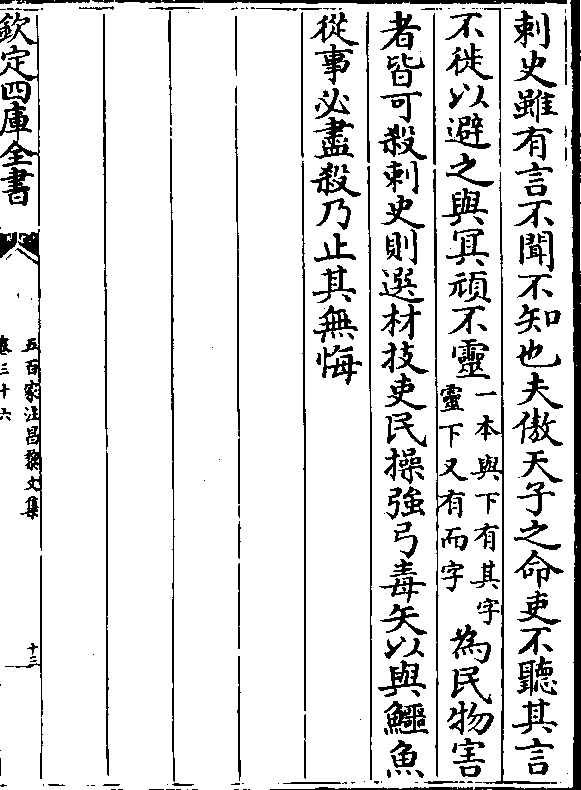 刺史雖有言不聞不知也夫傲天子之命吏不聽其言
不徙以避之與冥頑不靈一本與下有其字靈下又有而字為民物害
者皆可殺刺史則選材技吏民操強弓毒矢以與鱷魚
從事必盡殺乃止其無悔
欽定四庫全書
五百家注昌黎文集
卷三十六
十三